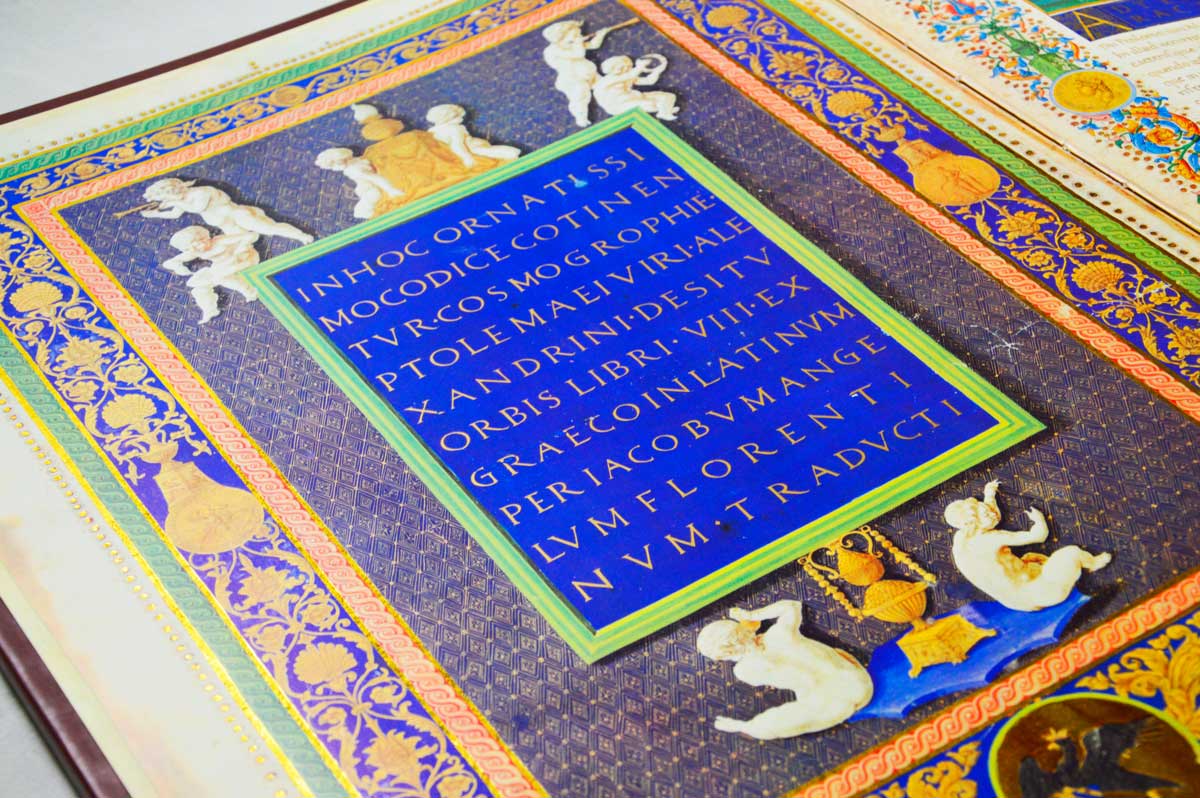 INHOC ORNATISSI
MOCODICE COTINEN
TVR·COSMOGROPHIE·
PTOLEMAEI VIRI·ALE
XANDRINI·DESITV
ORBIS LIBRI·VIII·EX
GRAECOINLATINVM
PER IACOBVM ANGE
LVM FLORENTI
NVM·TRADVCTI